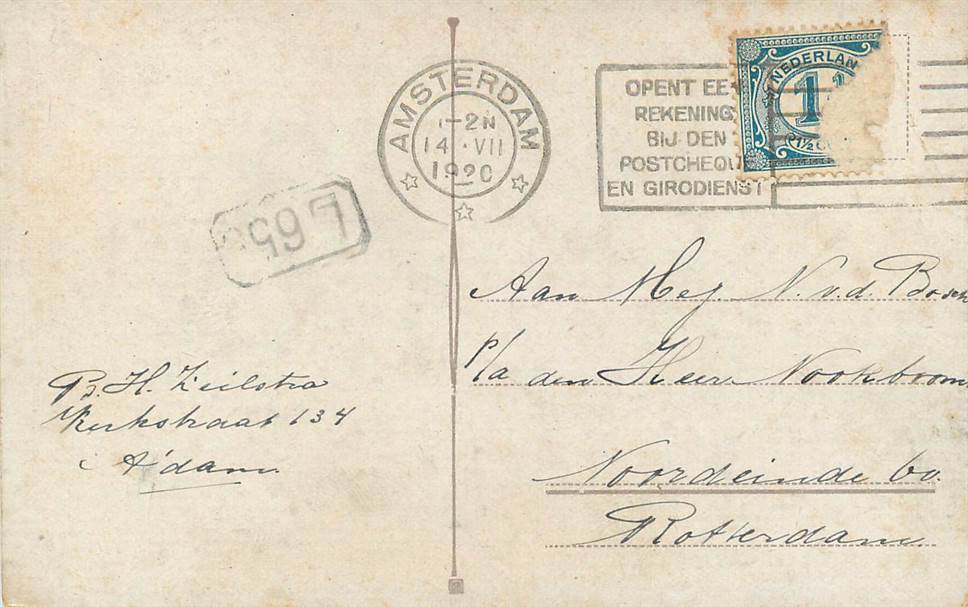 AMSTERDAM
1-2N
14.VII
1920
OPENT EE
REKENING
BIJ DEN
POSTCHEQU
EN GIRODIENST
NEDERLAN
1½
Aan Mej. N. v. d. Bosch
p/a den Heer Nookboom
Noordeinde 60.
Rotterdam.
H. Zeilstra
Kerkstraat 134
A'dam.